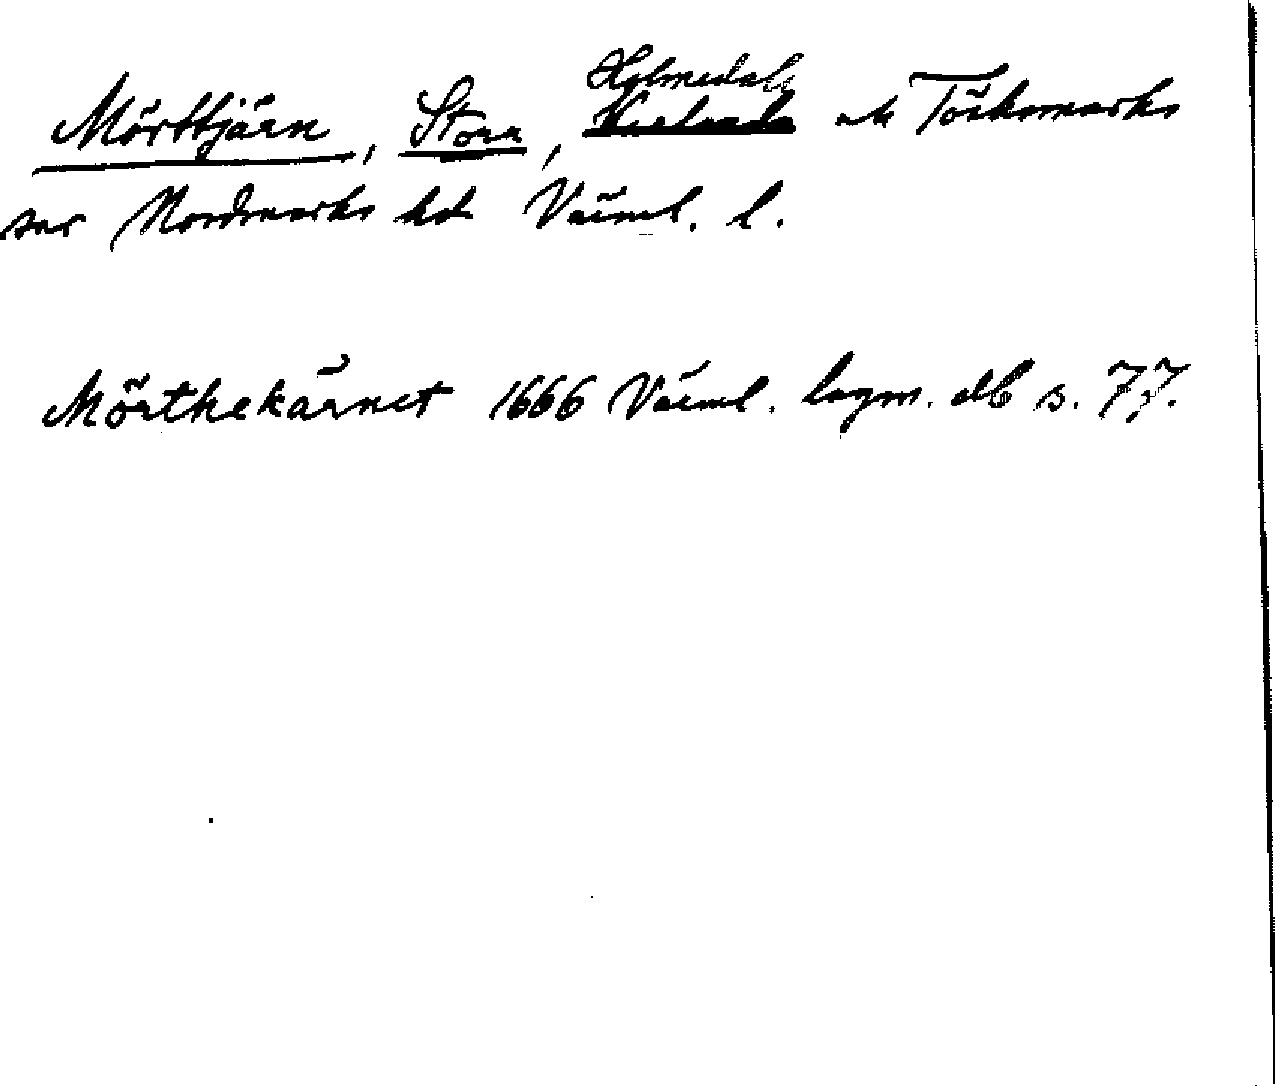 Mörttjärn, Stora, Holmedals och Töcksmarks
snr Nordmarks hd Värml. l.
Mörthekärnet 1666 Värml. lagm. db s. 77.